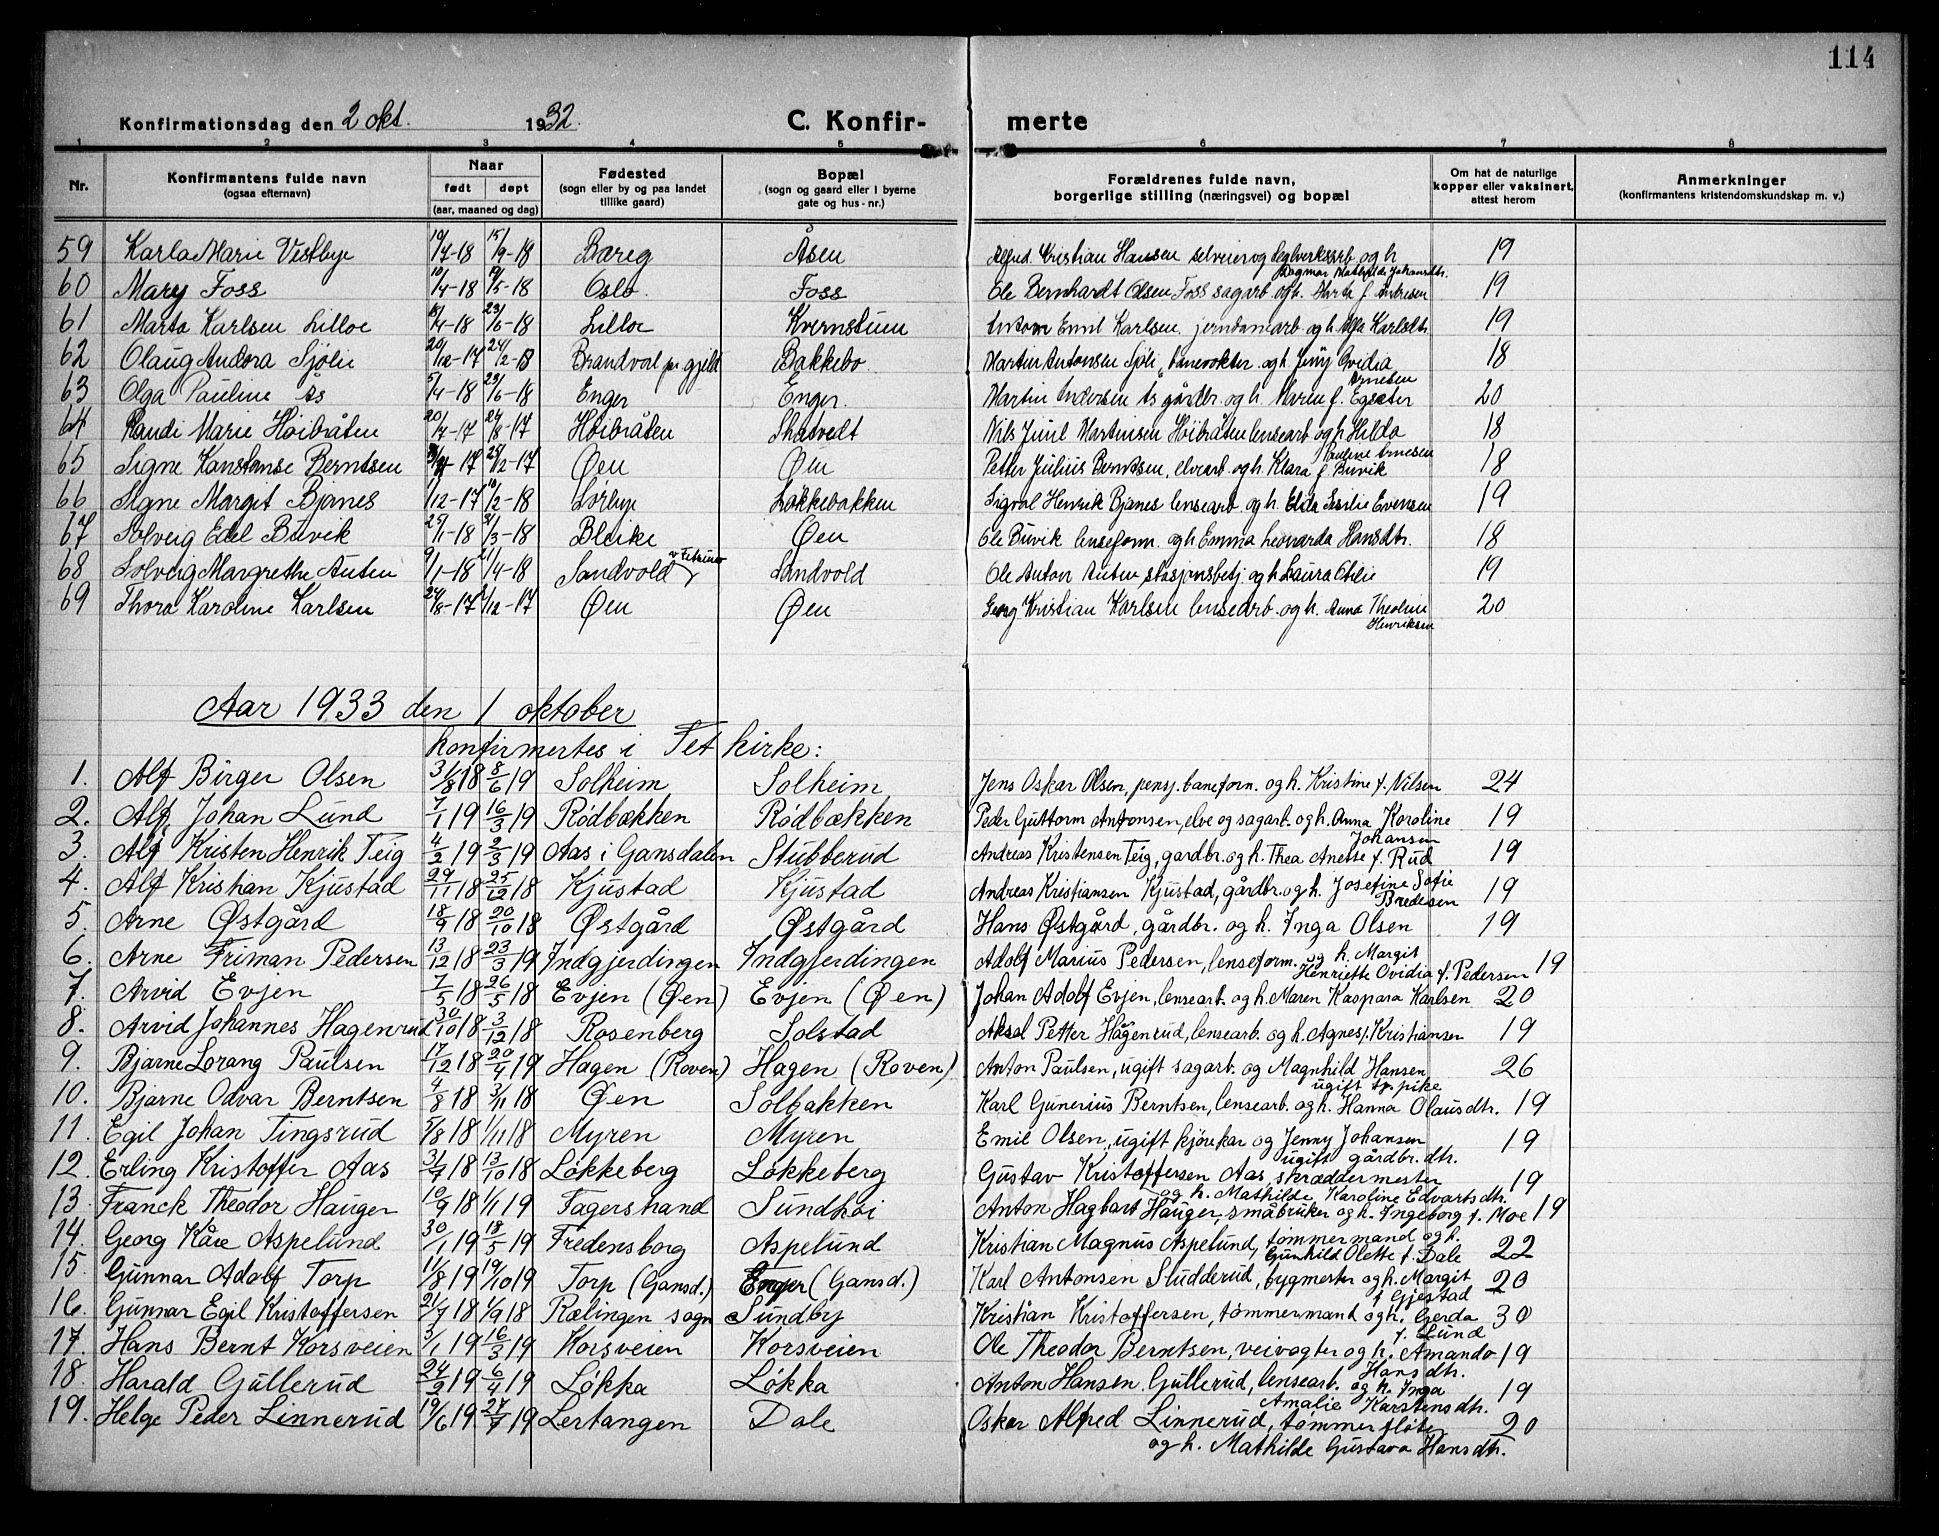 114
Konfirmationsdag den 2 okt. 1932. C. Konfir- merte
1 2 3 4 5 6 7 8
Nr. Konfirmantens fulde navn (ogsaa efternavn) Naar født døpt (aar, maaned og dag) Fødested (sogn eller by og paa landet tillike gaard) Bopæl (sogn og gaard eller i byerne gate og hus-nr.) Forældrenes fulde navn, borgerlige stilling (næringsvei) og bopæl Om hat de naturlige kopper eller vaksinert, attest herom Anmerkninger (konfirmantens kristendomskundskap m. v.)
59 Karla Marie Vestbye 19/7-18 15/9-18 Åsen Alfred Kristian Hansen selveier og teglverksarb og h Dagmar Mathilde Johansdtr. 19
60 Mary Foss 10/4-18 19/5-18 Oslo. Foss Ole Bernhardt Olsen Foss sagarb. og h. Marte f. Andresen 19
61 Marta Karlsen Lilloe 23/6-18 Lilloe Kvernstuen Anton Emil Karlsen jernbanearb og h. Karlsdtr. 19
62 Olaug Andora Sjølie 20/12-17 24/2-18 Brandvol pr gjeld Bakkebo. Martin Antonsen Sjøli, banevokter og h. Jenny Ovidia Arnesen 18
63 Olga Pauline Ås 5/4-18 23/6-18 Enger Enger. Martin Andersen Ås gårdbr. og h. Maren f. Egsæter 20
64 Randi Marie Høibråten 20/7-17 24/8-17 Høibråten Skatvedt Nils Juul Martinsen Høibråten lensearb og h Hilda Pauline Arnesen 18
65 Signe Konstanse Berntsen 25/12-17 Øen Øen Petter Julius Berntsen, elvearb. og h. Klara f. Buvik 18
66 Signe Margit Bjanes 1/12-17 10/2-18 Sørbye Løkkebakken Sigval Henrik Bjanes lensearb og h. Elida Emilie Evensen 19
67 Solveig Edel Buvik 25/1-18 31/3-18 Bleike Øen Ole Buvik lenseform. og h Emma Leonarda Hansdtr. 18
68 Solveig Margrethe Auten 9/1-18 21/4-18 Sandvold v Fetsund Sandvold Ole Anton Auten stasjonsbetj. og h. Laura Otilie 19
69 Thora Karoline Karlsen 24/8-17 2/12-17 Øen Øen Georg Kristian Karlsen lensearb. og h. Anna Theoline Henriksen 20
Aar 1933 den 1 oktober
konfirmertes i Fet kirke:
1. Alf Birger Olsen 31/8 18 8/6 19 Solheim Solheim Jens Oskar Olsen, pensj. baneform. og h. Kristine f. Nilsen 24
2. Alf Johan Lund 7/1 19 16/3 19 Rødbækken Rødbækken Peder Guttorm Antonsen, elve og sagarb. og h. Anna Karoline Johansen 19
3. Alf Kristen Henrik Teig 4/2 19 2/3 19 Aas i Gansdalen Stubberud Andreas Kristensen Teig, gardbr. og h. Thea Anette f. Rud 19
4. Alf Kristian Kjustad 29/11 18 25/12 18 Kjustad Kjustad Andreas Kristiansen Kjustad, gårdbr. og h. Josefine Sofie Bredesen 19
5. Arne Østgård 18/9 18 20/10 18 Østgård Østgård Hans Østgård, gårdbr. og h. Inga Olsen 19
6. Arne Friman Pedersen 13/12 18 23/3 19 Indgjerdingen Indgjerdingen Adolf Marius Pedersen, lenseform. og h. Margit Henriette Ovidia f. Pedersen 19
7. Arvid Evjen 7/5 18 26/5 18 Evjen (Øen) Evjen (Øen) Johan Adolf Evjen, lensearb. og h. Maren Kaspara Karlsen 20
8. Arvid Johannes Hagenrud 30/10 18 3/12 18 Rosenberg Solstad Aksel Petter Hagenrud, lensearb. og h. Agnes f. Kristiansen 19
9. Bjarne Lorang Paulsen 17/12 18 20/4 19 Hagen (Roven) Hagen (Roven) Anton Paulsen, ugift sagarb. og Magnhild Hansen ugift tj. pike 26
10. Bjarne Odvar Berntsen 4/8 18 3/11 18 Øen Solbakken Karl Gunerius Berntsen, lensearb. og h. Hanna Olausdtr. 19
11. Egil Johan Tingsrud 5/8 18 1/11 18 Myren Myren Emil Olsen, ugift kjørekar og Jenny Johansen ugift gårdbr. dtr. 19
12. Erling Kristoffer Aas 31/7 18 13/10 18 Løkkeberg Løkkeberg Gustav Kristoffersen Aas, skræddermester og h. Mathilde Karoline Edvartsdtr. 19
13. Franck Theodor Hauger 10/9 18 1/1 19 Fagerstrand Sundhøi Anton Hagbart Hauger, småbruker og h. Ingeborg f. Moe 19
14. Georg Kåre Aspelund 30/1 19 18/5 19 Fredensborg Aspelund Kristian Magnus Aspelund, tømmermand og h. Gunhild Olette f. Dale 22
15. Gunnar Adolf Torp 11/8 19 19/10 19 Torp (Gansd.) Enger (Gansd.) Karl Antonsen Studderud, bygmester og h. Margit f Gjestad 20
16. Gunnar Egil Kristoffersen 21/7 18 1/9 18 Rælingen sogn Sundby Kristian Kristoffersen, tømmermand og h. Gerda f. Lund 30
17. Hans Bernt Korsveien 3/1 19 16/3 19 Korsveien Korsveien Ole Theodor Berntsen, veivogter og h. Amanda Hansdtr. 19
18. Harald Gullerud 24/2 19 6/4 19 Løkka Løkka Anton Hansen Gullerud, lensearb. og h. Inga Amalie Karstensdtr. 19
19. Helge Peder Linnerud 19/6 19 27/7 19 Lertangen Dale Oskar Alfred Linnerud, tømmerfløter og h. Mathilde Gustava Hansdtr. 20